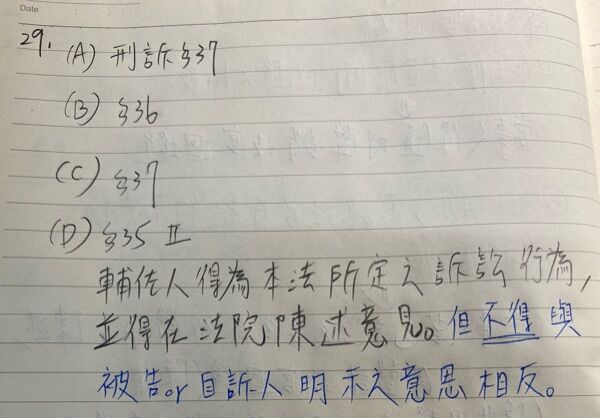 Date
29. (A) 刑訴§37
(B) §36
(C) §37
(D) §35 Ⅱ
輔佐人得為本法所定之訴訟行為,
並得在法院陳述意見。但不得與
被告or自訴人明示之意思相反。